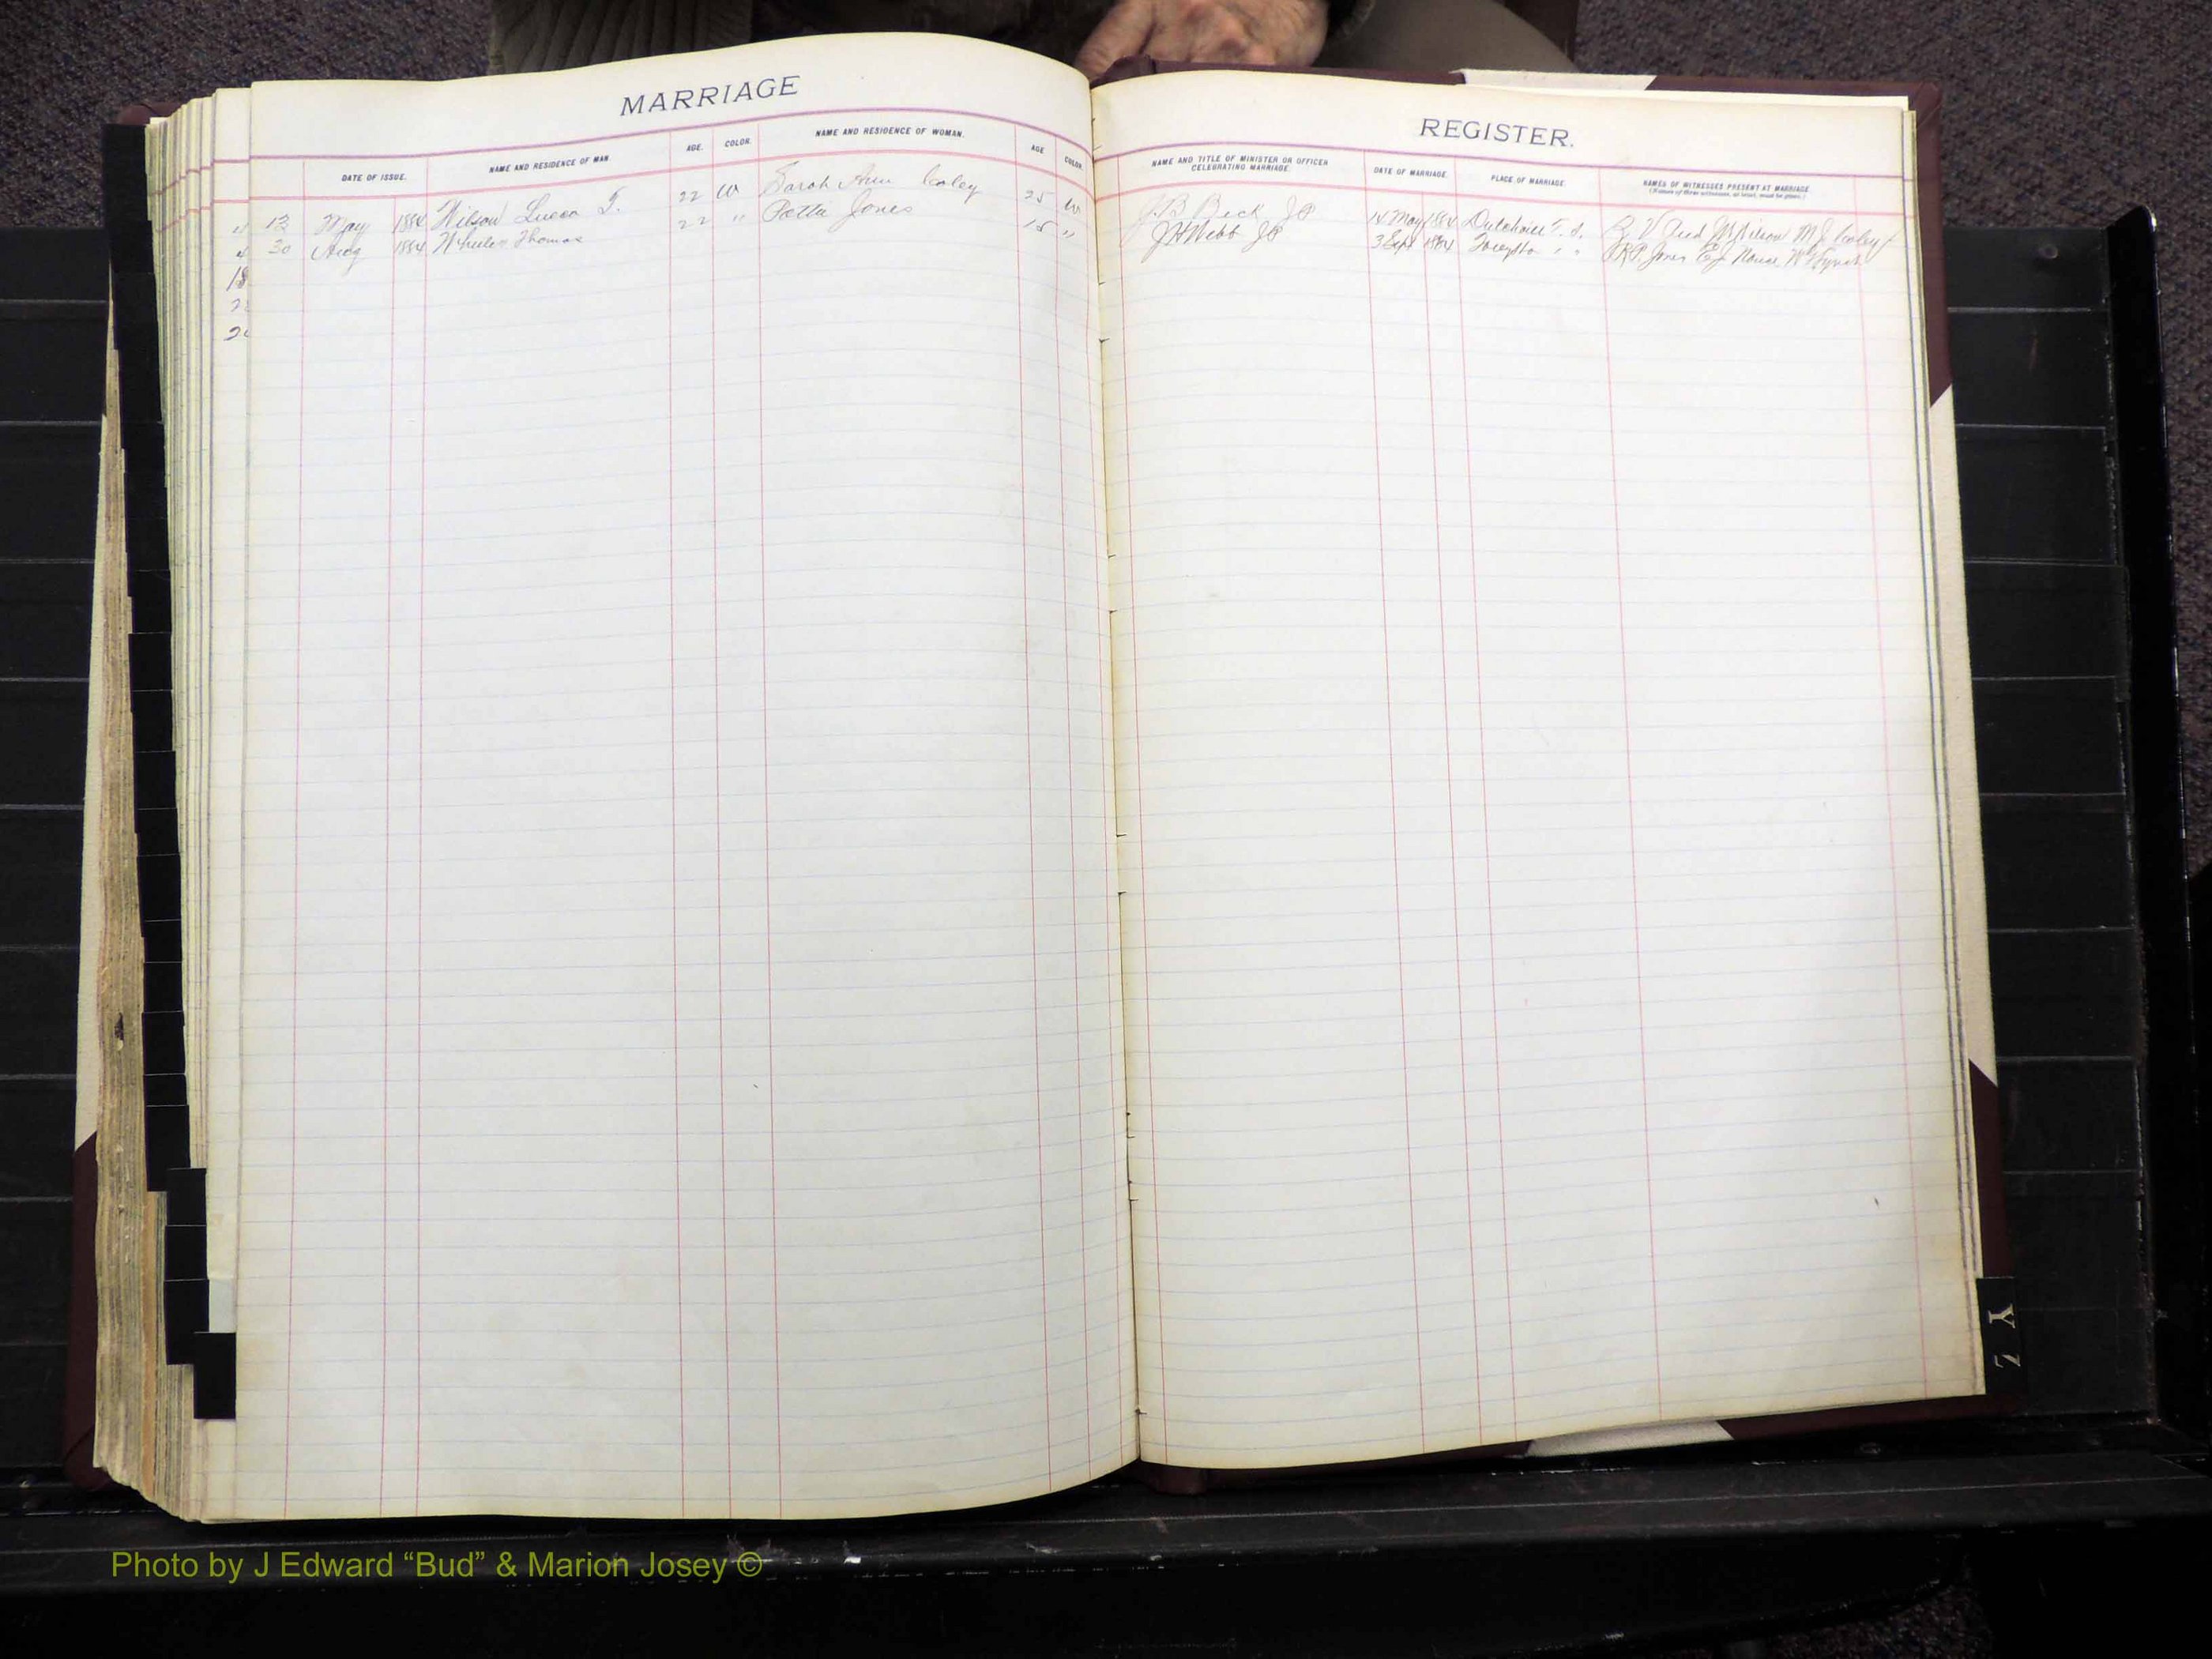 MARRIAGE
DATE OF ISSUE. NAME AND RESIDENCE OF MAN. AGE. COLOR. NAME AND RESIDENCE OF WOMAN. AGE COLOR.
13 May 1884 Wilson 22 W Sarah Ann Coley 25 W
30 Aug 1884 Thomas 22 " Jones "
REGISTER.
NAME AND TITLE OF MINISTER OR OFFICER CELEBRATING MARRIAGE. DATE OF MARRIAGE. PLACE OF MARRIAGE. NAMES OF WITNESSES PRESENT AT MARRIAGE.
(Names of three witnesses, at least, must be given.)
J.B. Beck JP 14 May 1884 M J Coley
J H Webb JP 3 Sept 1884 " " Jones
Y Z
Photo by J Edward “Bud” & Marion Josey ©